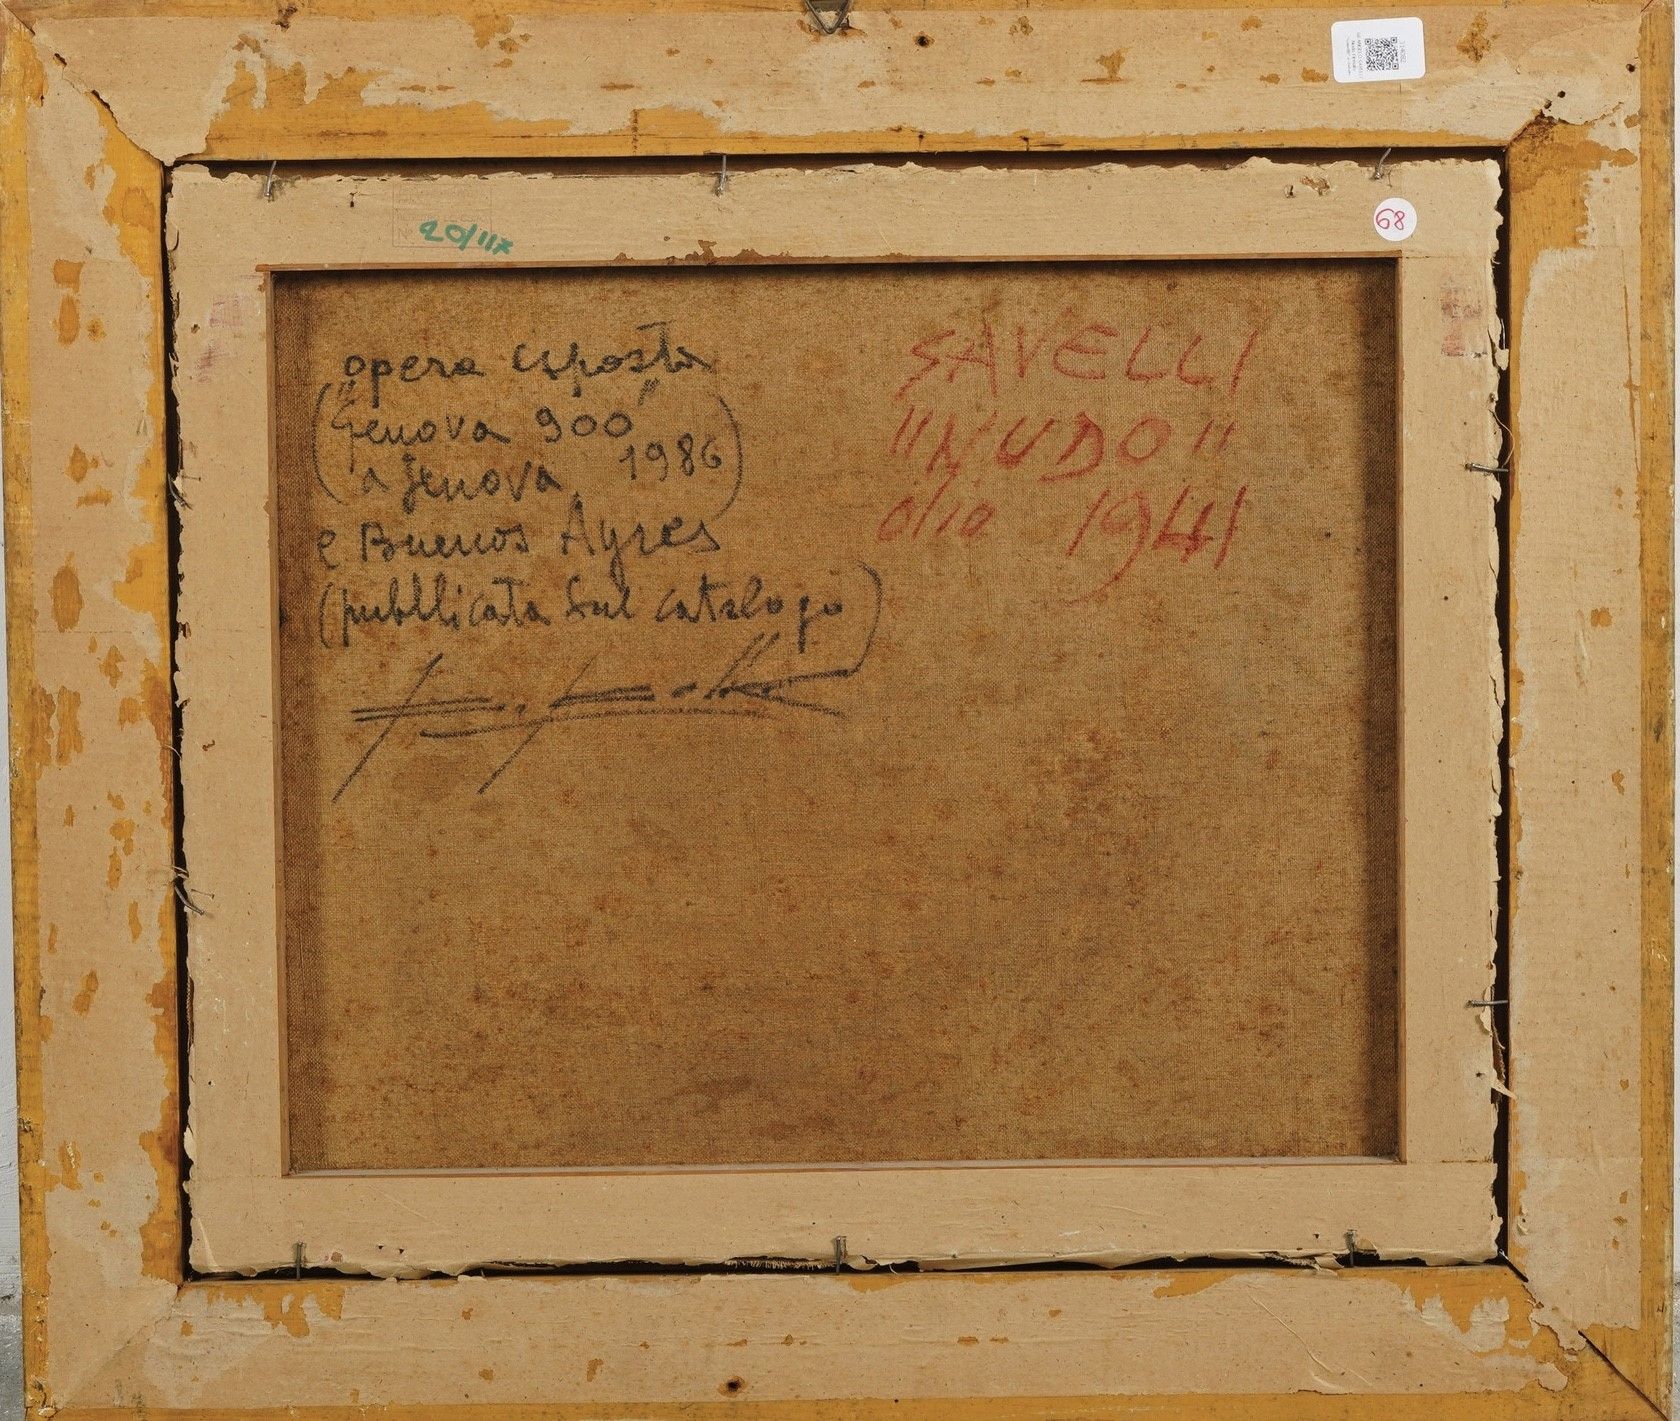 20/11
68
opera esposta
("Genova 900"
a Genova 1986)
e Buenos Ayres
(pubblicata sul catalogo)
SAVELLI
"NUDO"
olio 1941